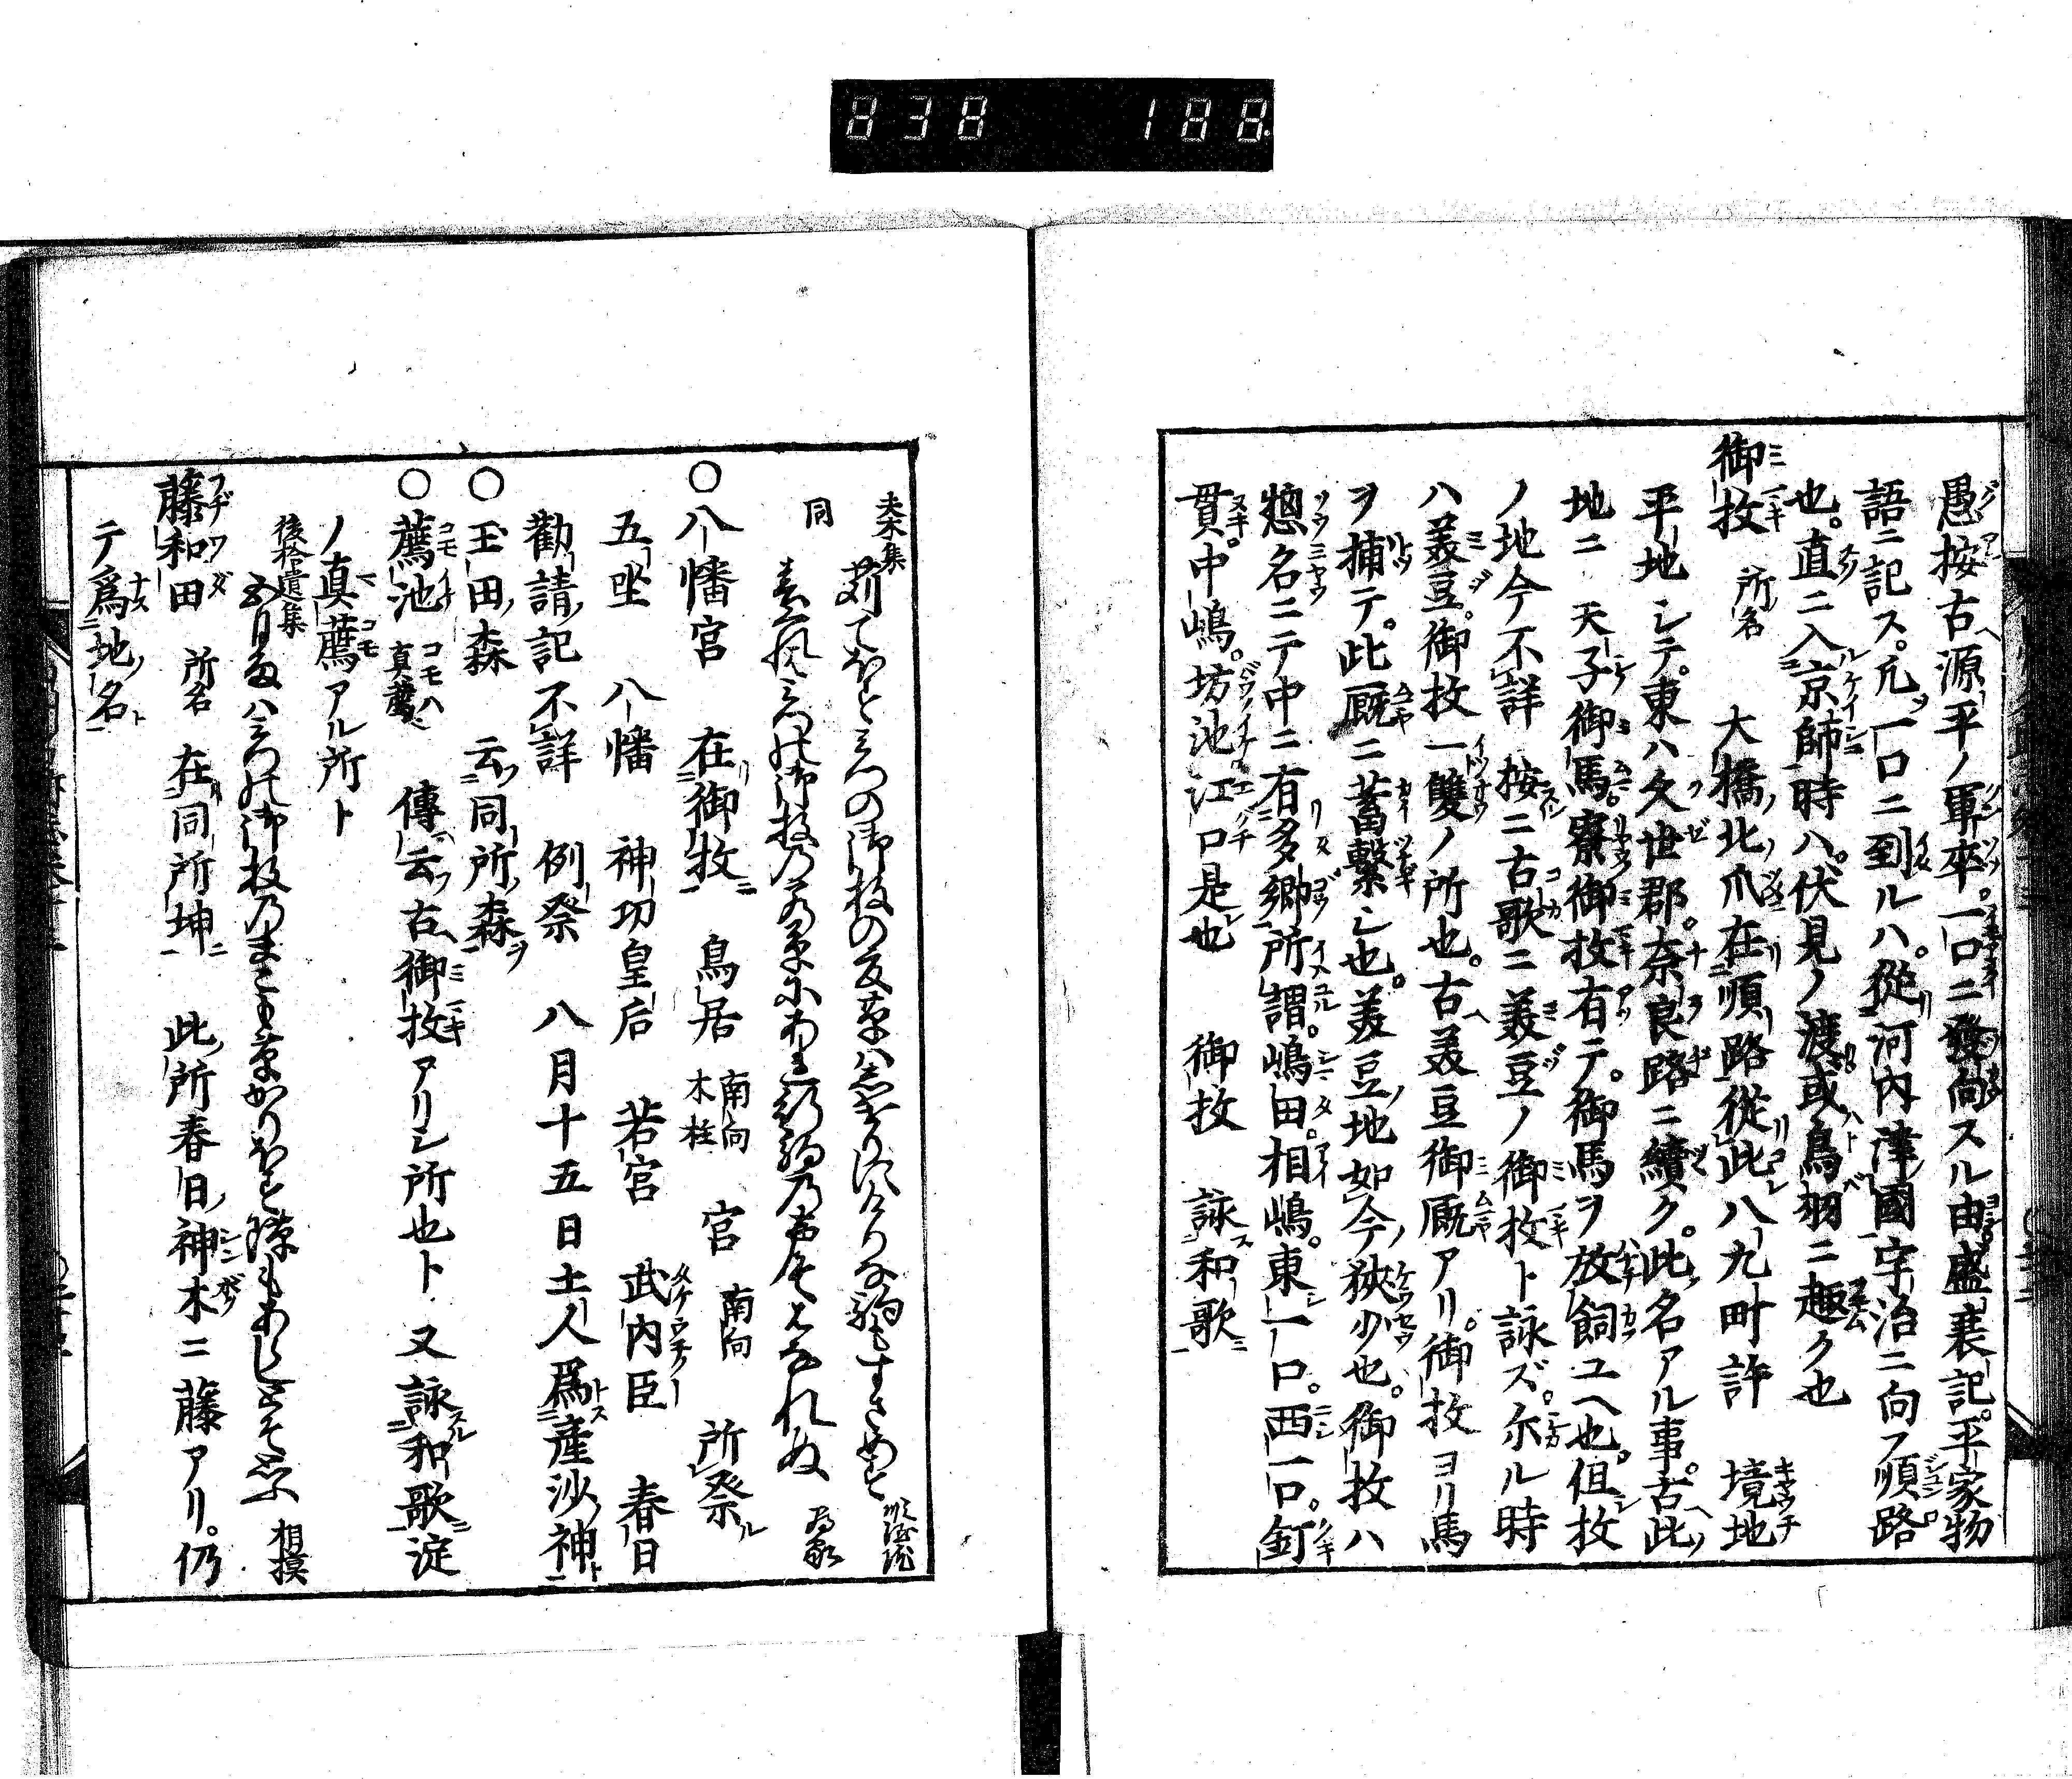 838 188
愚按古源平ノ軍卒。一口ニ發向スル由盛衰記。平家物
語ニ記ス。元一口ニ到ルハ。從河内津國宇治ニ向フ順路
也。直ニ入京師時ハ。伏見ノ渡或鳥羽ニ趣ク也
御牧 所名 大橋北爪在順路從此八九町許 境地
平地シテ。東ハ久世郡。奈良路ニ續ク。此名アル事。古此
地ニ 天子御馬寮御牧有テ。御馬ヲ放飼ユヘ也。但牧
ノ地今不詳 按ニ古歌ニ美豆ノ御牧ト詠ズ。尓ル時
ハ美豆。御牧一雙ノ所也。古美豆御厩アリ。御牧ヨリ馬
ヲ捕テ。此厩ニ蓄繫シ也。美豆地如今狹少也。御牧ハ
惣名ニテ中ニ有多郷所謂。嶋田。相嶋。東一口。西一口。釘
貫。中嶋。坊池江口是也 御牧 詠和歌
夫木集
同
○八幡宮 在御牧 鳥居 南向 木柱 宮 南向 所祭
五坐 八幡 神功皇后 若宮 武内臣 春日
勸請記不詳 例祭 八月十五日土人爲産沙神
○玉田森 云同所森
○薦池 真薦 傳云古御牧アリシ所也ト 又詠和歌淀
ノ真薦アル所ト
後拾遺集 五月雨ハみつの御牧のまこも草かりほす隙もあらしとそ思ふ 相模
藤和田 所名 在同所坤 此所春日神木ニ藤アリ。仍
テ爲地名